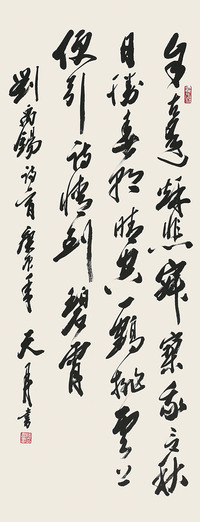 自古逢秋悲寂寥我言秋
日勝春朝晴空一鶴排雲上
便引詩情到碧霄
劉禹錫詩 年天 書